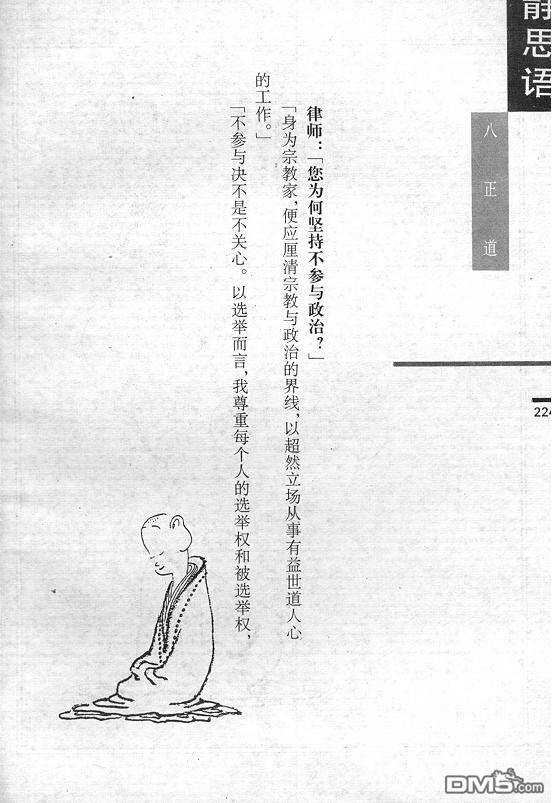 静思语
八正道
224
律师：「您为何坚持不参与政治？」
「身为宗教家，便应厘清宗教与政治的界线，以超然立场从事有益世道人心
的工作。」
「不参与决不是不关心。以选举而言，我尊重每个人的选举权和被选举权，
DM5.com